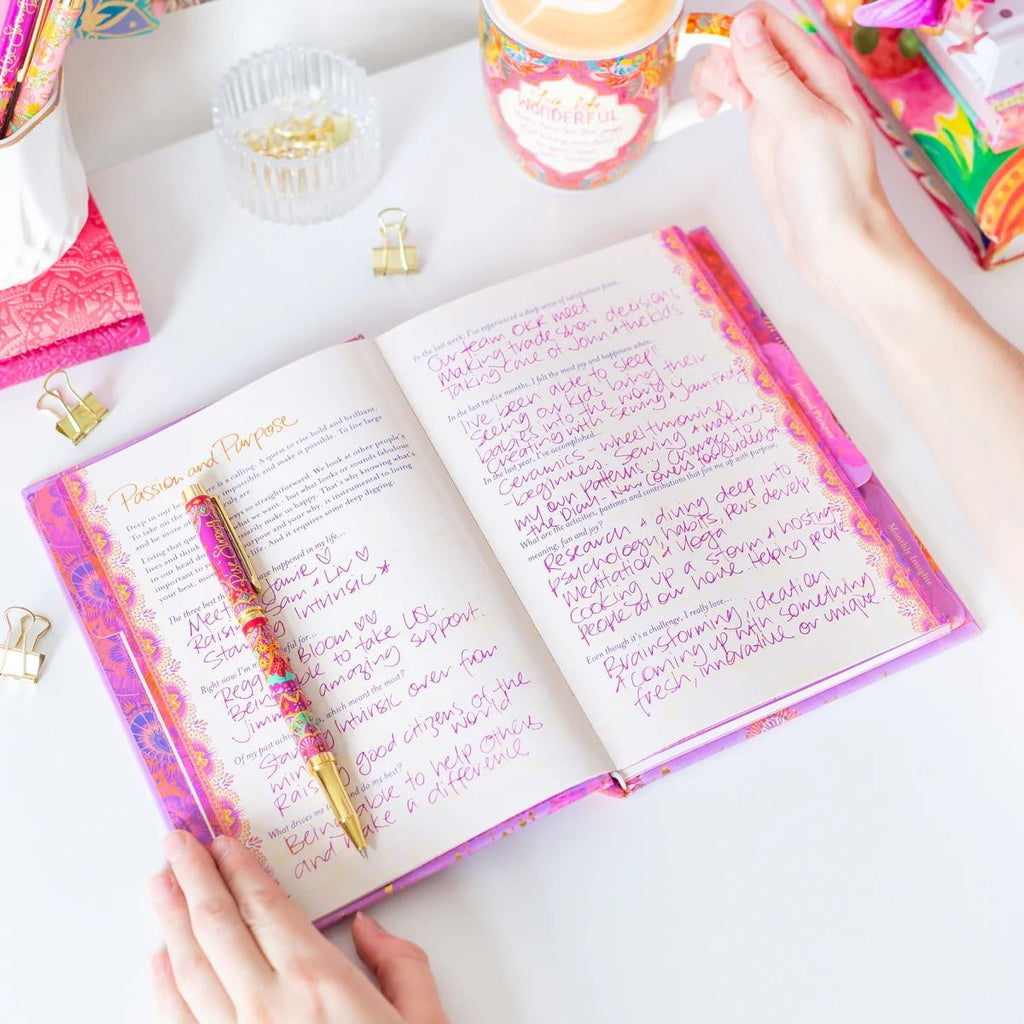 Passion and Purpose
Deep in our he is a calling. A quest to rise bold and brilliant.
To take on the impossible and make it possible. To live large
and be more truly are.
Living that qu y is straightforward. We look at other people's
lives and think d – but what looks or sounds fabulous
in our head do ssarily make us happy. That's why knowing what's
important to y and why, is instrumental to living
your best, mos life. And it requires some deep digging.
The three best th ave happened in my life...
Meet amie ♡
Raisi am + Liv ♡
Start Intrinsic *
Right now I'm m ul for...
Rega Bloom ♡♡
Being ble to take USL
Jimm r amazing support.
Of my past achi s, which meant the most?
Sta Intrinsic over from
win
Raisi good citizens of the world
What drives me to and do my best?
Being able to help others
and make a difference
In the last week, I've experienced a deep sense of satisfaction from...
Our team OKR meet
Making trade show decisions
Taking care of John + the kids
In the last twelve months, I felt the most joy and happiness when...
I've been able to sleep!
Seeing our kids living their
babies into the world
Creating with sewing +
In the last year, I've accomplished...
Ceramics - wheel throwing
beginners, Sewing + making
my own patterns, changes to
the Diary - New Covers to guides
What are the activities, pastimes and contributions that fire me up with purpose,
meaning, fun and joy?
Research + diving deep into
psychology, habits, pers develp
Meditation + Yoga
Cooking up a storm + hosting
people at our home Helping people
Even though it's a challenge, I really love...
Brainstorming, ideation
+ coming up with something
fresh, innovative or unique
Monthly Insights
live life
WONDERFUL